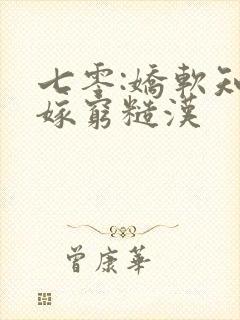 七零:嬌軟知
嫁窮糙漢
曾康華